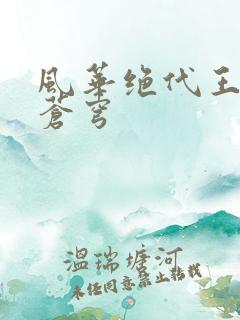 風華绝代王
蒼穹
温瑞塘河
未经同意禁止转载